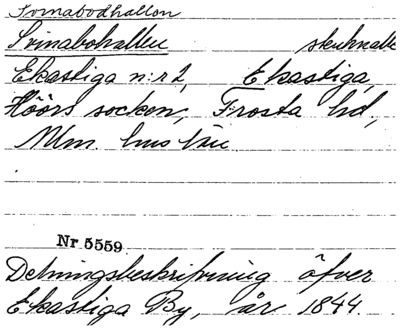 Svinabodhallon
Svinabohallen skuknalle
Ekastiga n:r 2, Ekastiga,
Höörs socken, Frosta hd,
Mlm. hus län
Nr 5559
Delningsbeskrifning öfver
Ekastiga By, år 1844.